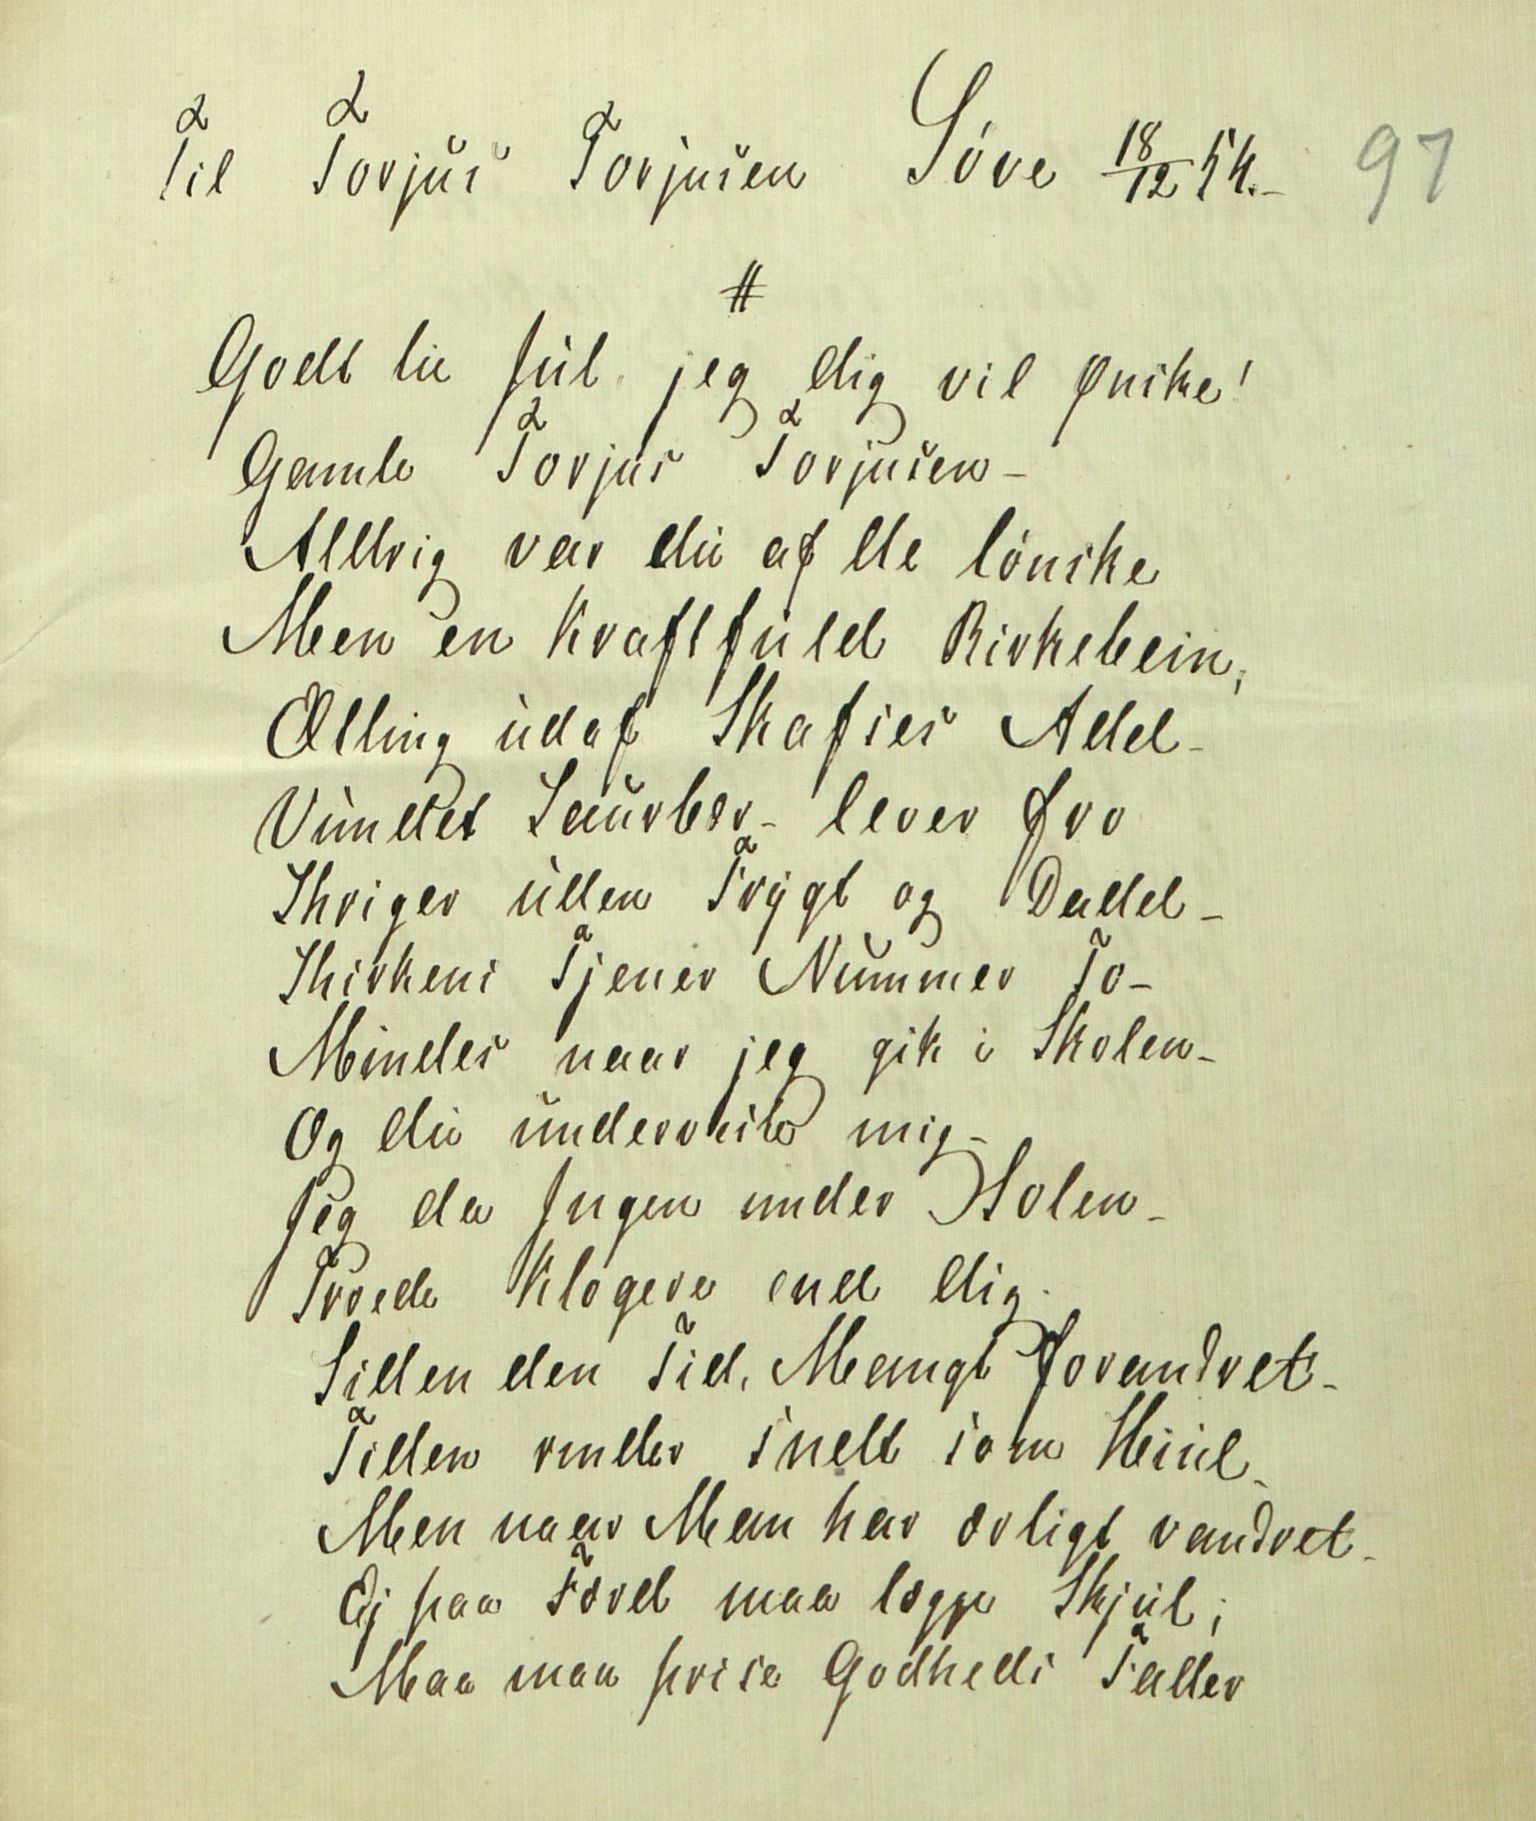 Til Torjus Torjusen Söve 18/12 54.- 97
#
Godt lie Jul jeg dig vil ønske!
Gamle Torjus Torjusen -
Alldrig var du af de lönske
Men en Kraftfuld Birkebein,
Ætling udaf Skafses Addel -
Vundet Laurbær - lever fro
Skriger uden Frygt og Daddel -
Skirkens Tjener Nummer To -
Mindes naar jeg gik i Skolen -
Og du underviste mig -
Jeg da Ingen under Solen -
Troede Klogere end dig.
Siden den Tid, Mangt forandret -
Tiden runder snelt som Hiul -
Men naar Man har ærligt vandret -
Ej paa Færd maa lægge Skjul;
Maa man prise Godheds Fader